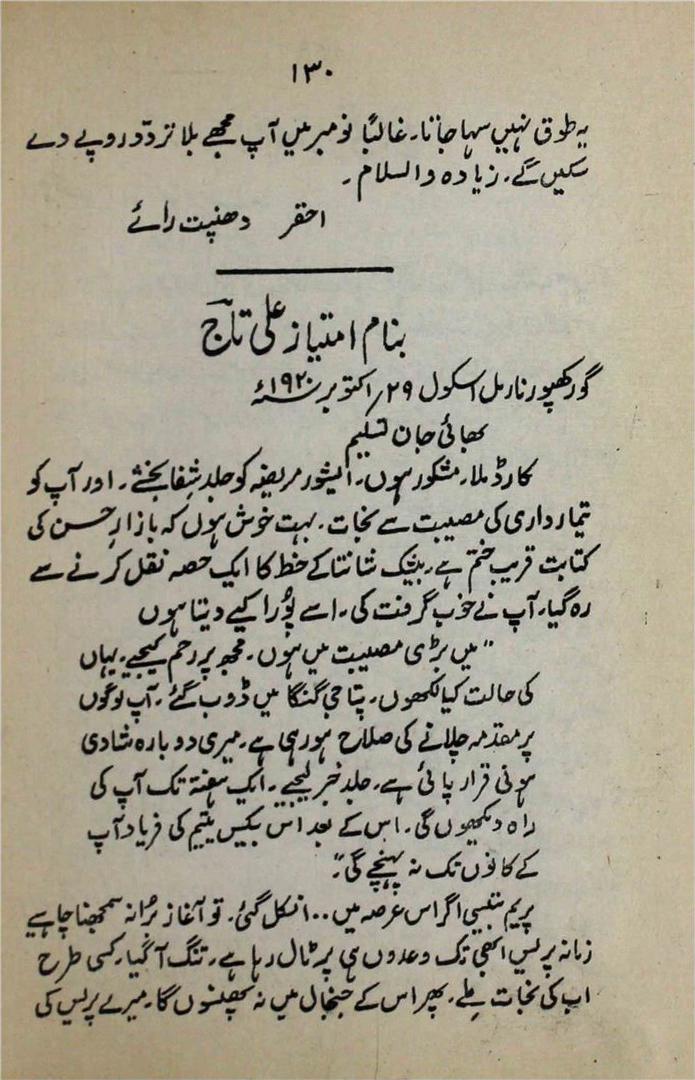 ۱۳۰
یہ طوق نہیں سہا جاتا۔ غالباً نومبر میں آپ مجھے بلا تردّد روپے دے
سکیں گے۔ زیادہ والسلام۔
احقر دھنپت رائے
بنام امتیاز علی تاج
گورکھپور نارمل اسکول ۲۹؍ اکتوبر ۱۹۲۰ء
بھائی جان تسلیم
کارڈ ملا۔ مشکور ہوں۔ ایشور مریضہ کو جلد شفا بخشے۔ اور آپ کو
تیمار داری کی مصیبت سے نجات۔ بہت خوش ہوں کہ بازارِ حسن کی
کتابت قریب ختم ہے۔ بیشک شانتا کے خط کا ایک حصہ نقل کرنے سے
رہ گیا۔ آپ نے خوب گرفت کی۔ اسے پُورا کیے دیتا ہوں
”میں بڑی مصیبت میں ہوں۔ مجھ پر رحم کیجیے۔ یہاں
کی حالت کیا لکھوں۔ پتا جی گنگا میں ڈوب گئے۔ آپ لوگوں
پر مقدمہ چلانے کی صلاح ہو رہی ہے۔ میری دوبارہ شادی
ہونی قرار پائی ہے۔ جلد خبر لیجیے۔ ایک ہفتہ تک آپ کی
راہ دیکھوں گی۔ اس کے بعد اس بیکس یتیم کی فریاد آپ
کے کانوں تک نہ پہنچے گی“۔
پریم بتیسی اگر اس عرصہ میں ۱۰۰ نکل گئی۔ تو آغاز بُرا نہ سمجھنا چاہیے
زمانہ پریس ابھی تک وعدوں ہی پر ٹال رہا ہے۔ تنگ آ گیا۔ کسی طرح
اب کی نجات ملے۔ پھر اس کے جنجال میں نہ پھنسوں گا۔ میرے پریس کی